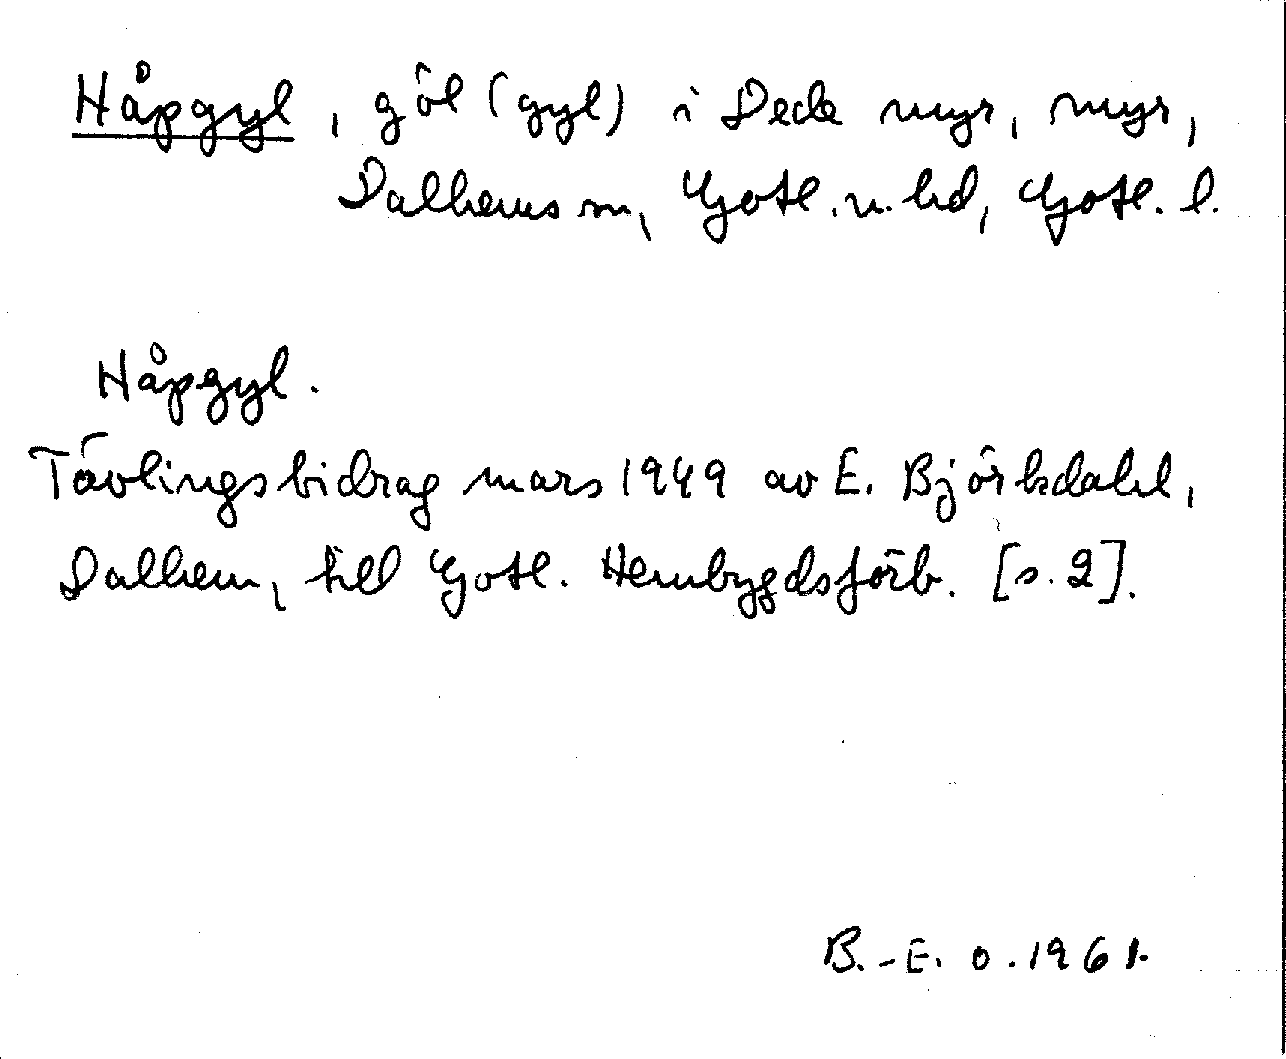 Håpgyl, göl (gyl) i Dede myr, myr,
Dalhems sn, Gotl. n. hd, Gotl. l.
Håpgyl.
Tävlingsbidrag mars 1949 av E. Björkdahl,
Dalhem, till Gotl. Hembygdsförb. [s. 2].
B.-E. O. 1961.